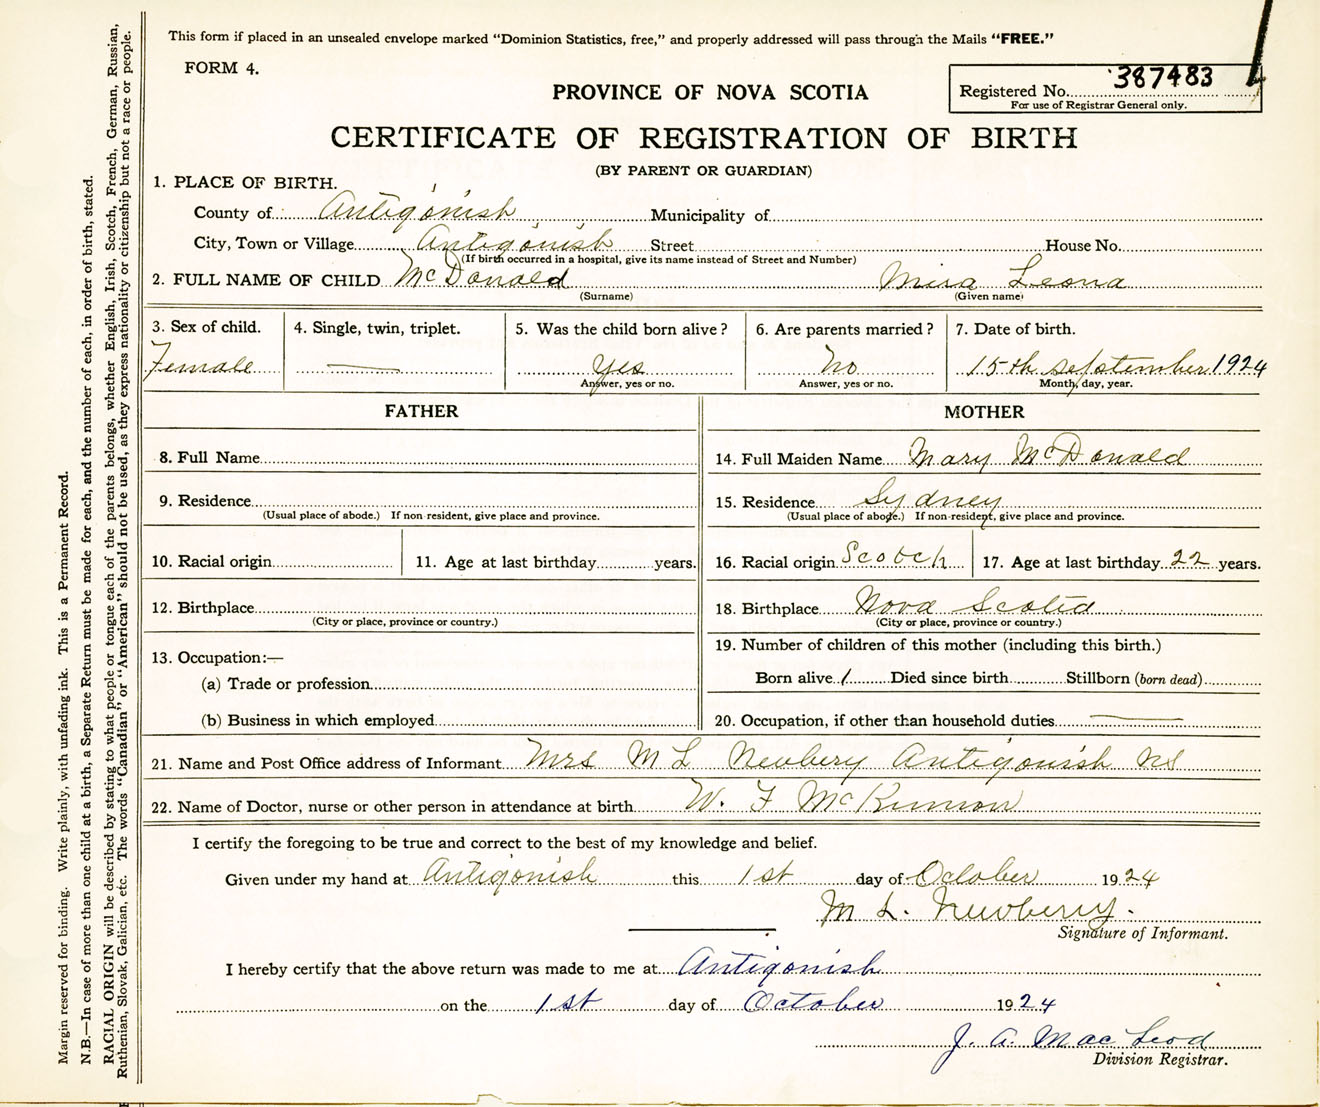 This form if placed in an unsealed envelope marked "Dominion Statistics, free," and properly addressed will pass through the Mails "FREE."
FORM 4.
Registered No. 387483
For use of Registrar General only.
PROVINCE OF NOVA SCOTIA
CERTIFICATE OF REGISTRATION OF BIRTH
(BY PARENT OR GUARDIAN)
1. PLACE OF BIRTH.
County of Antigonish Municipality of
City, Town or Village Antigonish Street House No.
(If birth occurred in a hospital, give its name instead of Street and Number)
2. FULL NAME OF CHILD McDonald Mira Leona
(Surname) (Given name)
3. Sex of child. 4. Single, twin, triplet. 5. Was the child born alive? 6. Are parents married? 7. Date of birth.
Female — Yes No 15th September 1924
Answer, yes or no. Answer, yes or no. Month, day, year.
FATHER
8. Full Name
9. Residence
(Usual place of abode.) If non-resident, give place and province.
10. Racial origin 11. Age at last birthday years.
12. Birthplace
(City or place, province or country.)
13. Occupation:—
(a) Trade or profession
(b) Business in which employed
MOTHER
14. Full Maiden Name Mary McDonald
15. Residence Sydney
(Usual place of abode.) If non-resident, give place and province.
16. Racial origin Scotch 17. Age at last birthday 22 years.
18. Birthplace Nova Scotia
(City or place, province or country.)
19. Number of children of this mother (including this birth.)
Born alive 1 Died since birth Stillborn (born dead)
20. Occupation, if other than household duties —
21. Name and Post Office address of Informant Mrs M L Newbery Antigonish NS
22. Name of Doctor, nurse or other person in attendance at birth W. F McKinnon
I certify the foregoing to be true and correct to the best of my knowledge and belief.
Given under my hand at Antigonish this 1st day of October 1924
M L. Newberry.
Signature of Informant.
I hereby certify that the above return was made to me at Antigonish
on the 1st day of October 1924
J. A. MacLeod
Division Registrar.
Margin reserved for binding. Write plainly, with unfading ink. This is a Permanent Record.
N.B.—In case of more than one child at a birth, a Separate Return must be made for each, and the number of each, in order of birth, stated.
RACIAL ORIGIN will be described by stating to what people or tongue each of the parents belongs, whether English, Irish, Scotch, French, German, Russian,
Ruthenian, Slovak, Galician, etc. The words "Canadian" or "American" should not be used, as they express nationality or citizenship but not a race or people.